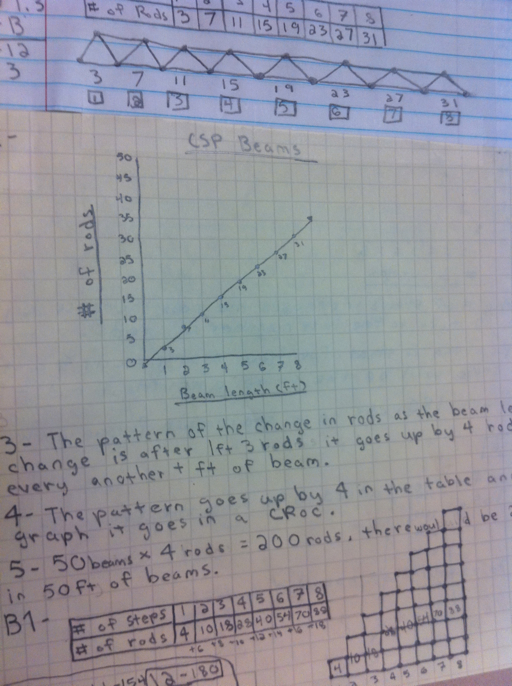 # of Rods 3 7 11 15 19 23 27 31
B
12
3
3 7 11 15 19 23 27 31
1 2 3 4 5 6 7 8
CSP Beams
50
45
40
35
30
25
20
15
10
5
0
# of rods
3 7 11 15 19 23 27 31
1 2 3 4 5 6 7 8
Beam length (ft)
3- The pattern of the change in rods as the beam
change is after 1ft 3 rods it goes up by 4
every another ft of beam.
4- The pattern goes up by 4 in the table
graph it goes in a CRoc.
5- 50 beams x 4 rods = 200 rods, there would be
in 50ft of beams.
B1-
# of steps 1 2 3 4 5 6 7 8
# of rods 4 10 18 28 40 54 70 88
+6 +8 +10 +12 +14 +16 +18
4 10 18 28 40 54 70 88
2 3 4 5 6 7 8
2-180